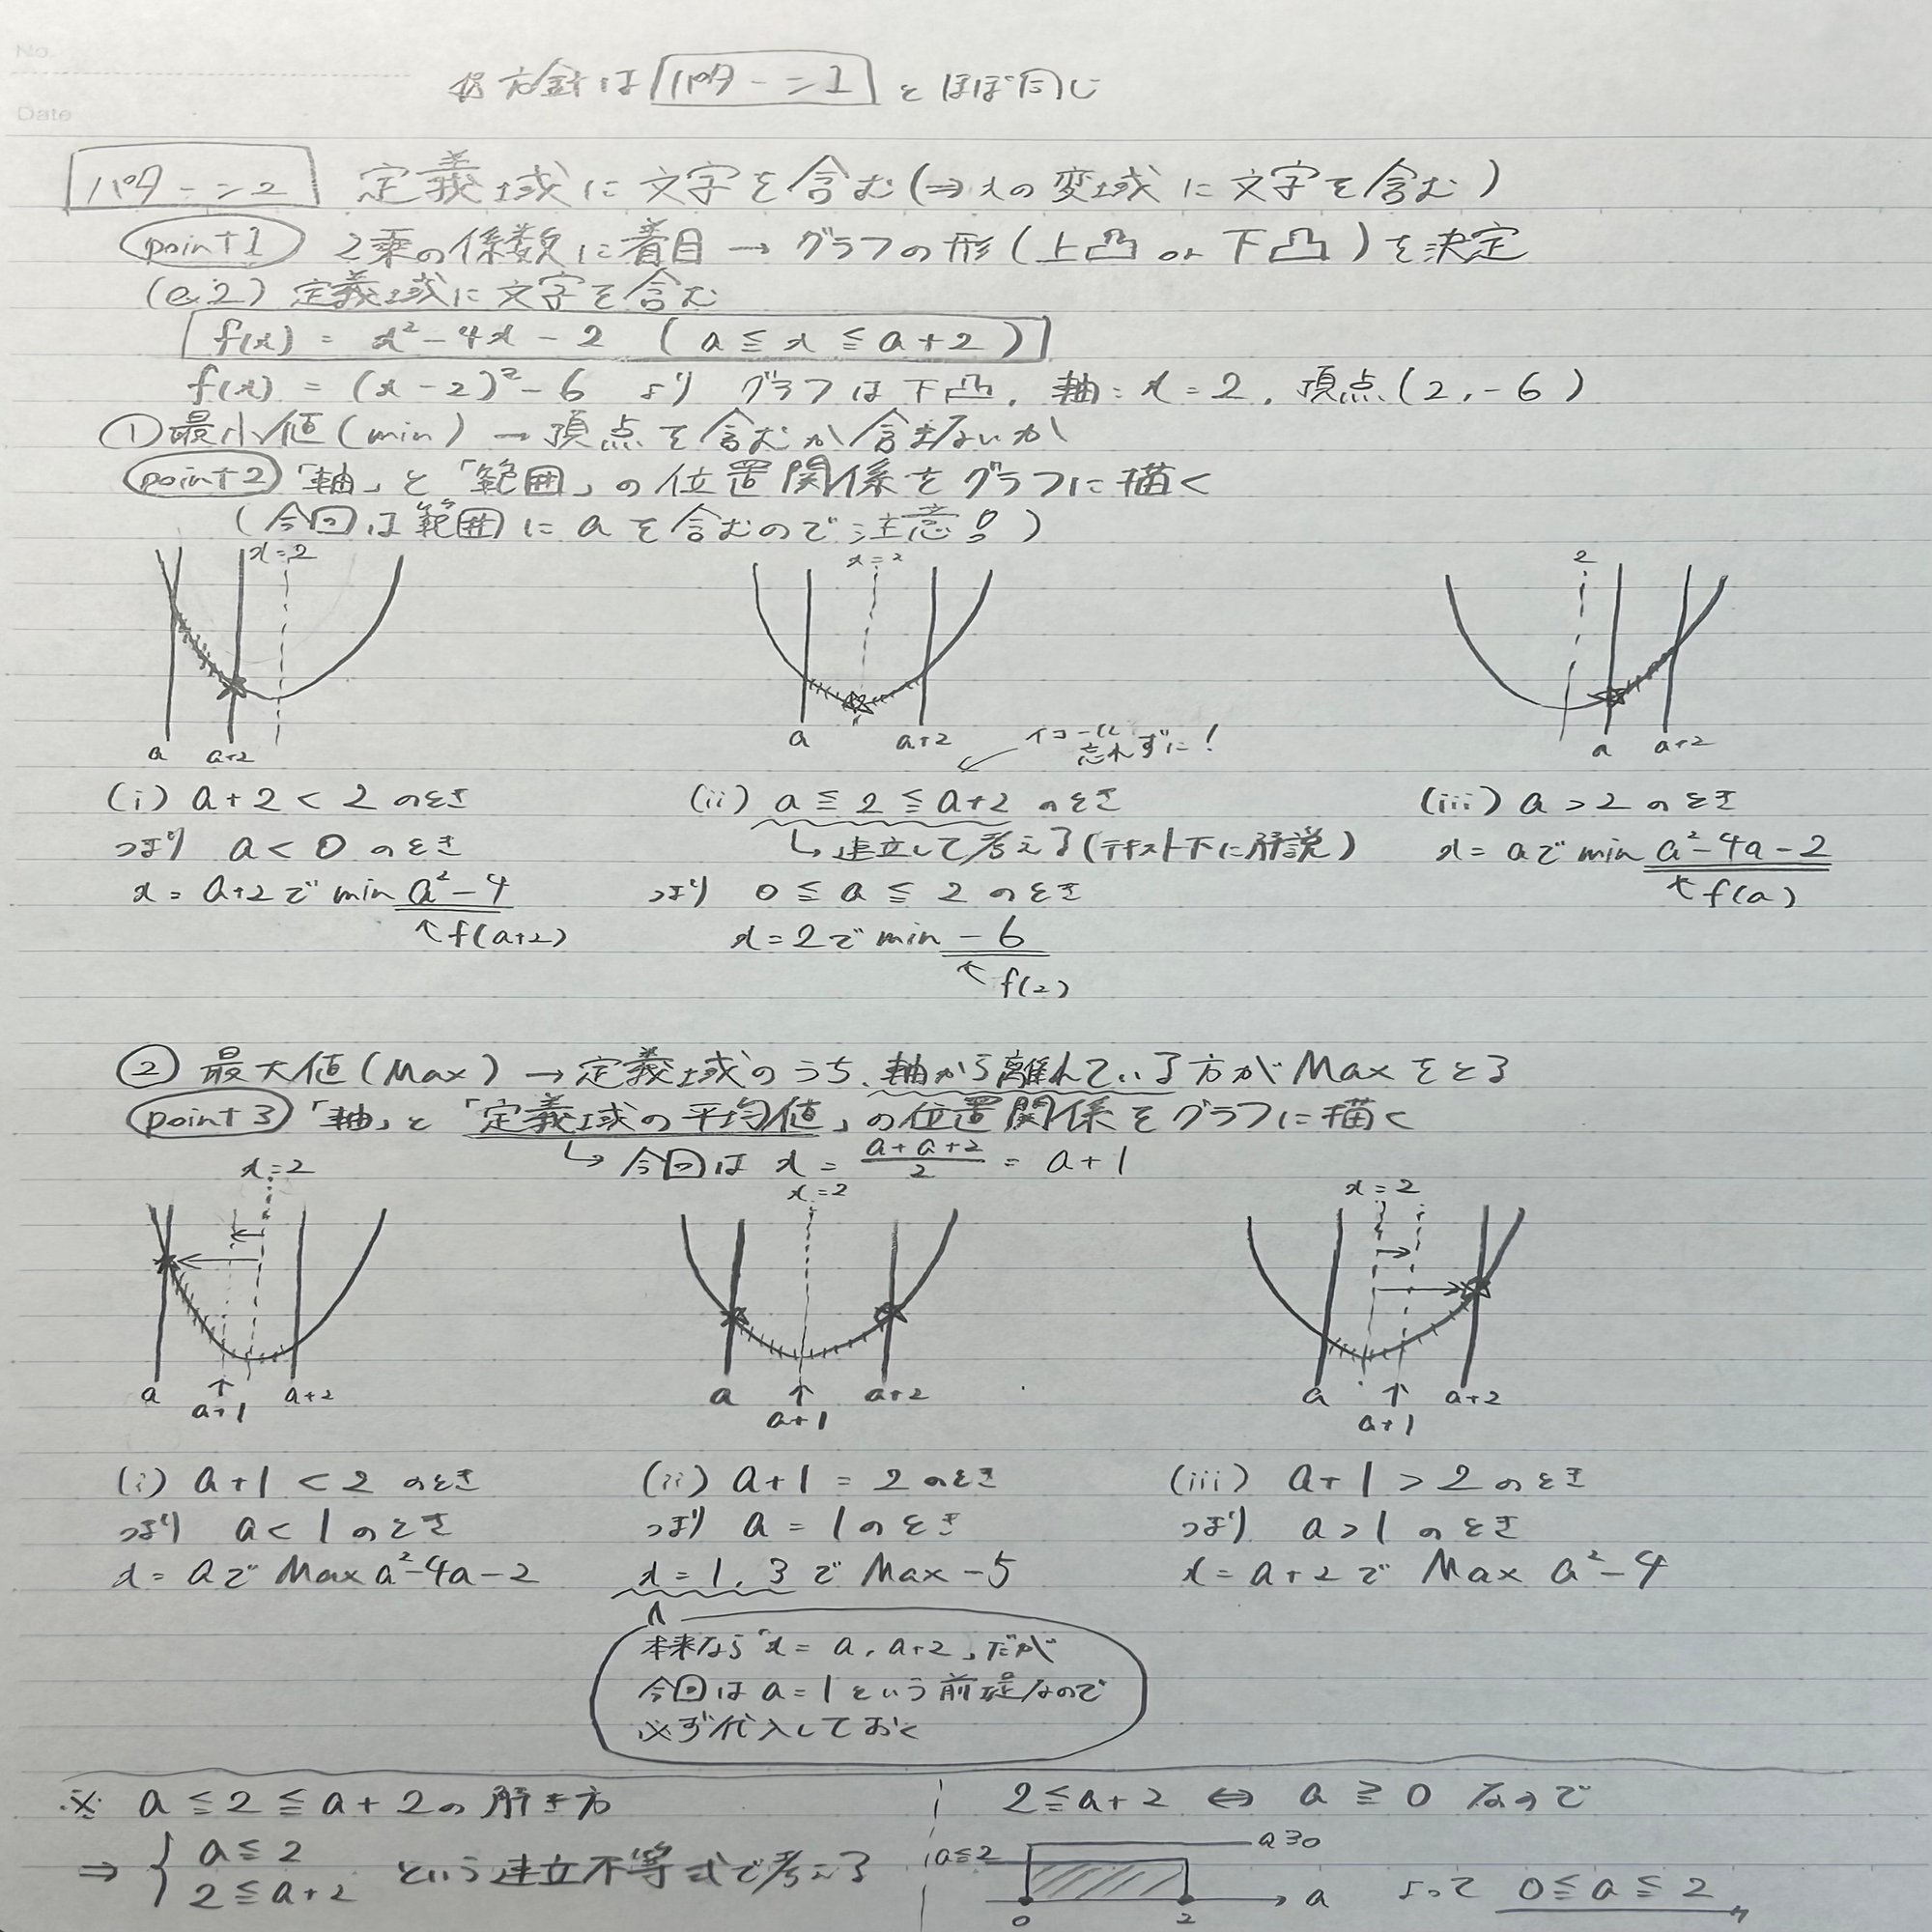 No.
Date
方針は パターン1 とほぼ同じ
パターン2 定義域に文字を含む(⇒xの変域に文字を含む)
point1 2乗の係数に着目→グラフの形(上凸 or 下凸)を決定
(e.2) 定義域に文字を含む
f(x) = x²-4x-2 (a≦x≦a+2)
f(x) = (x-2)²-6 より グラフは下凸, 軸:x=2, 頂点(2,-6)
①最小値(min)→頂点を含むか含まないか
point2 「軸」と「範囲」の位置関係をグラフに描く
(今回は範囲にaを含むので注意!)
x=2 x=2 2
a a+2 a a+2 a a+2
イコール忘れずに!
(i) a+2<2のとき (ii) a≦2≦a+2のとき (iii) a>2のとき
つまり a<0のとき ↳連立して考える(テキスト下に解説) x=aでmin a²-4a-2
x=a+2でmin a²-4 つまり 0≦a≦2のとき ↑f(a)
↑f(a+2) x=2でmin -6
↑f(2)
②最大値(Max)→定義域のうち、軸から離れている方がMaxをとる
point3 「軸」と「定義域の平均値」の位置関係をグラフに描く
↳今回は x=(a+a+2)/2=a+1
x=2 x=2 x=2
a a+1 a+2 a a+1 a+2 a a+1 a+2
(i) a+1<2のとき (ii) a+1=2のとき (iii) a+1>2のとき
つまり a<1のとき つまり a=1のとき つまり a>1のとき
x=aでMax a²-4a-2 x=1, 3でMax -5 x=a+2でMax a²-4
本来なら「x=a, a+2」だが
今回はa=1という前提なので
必ず代入しておく
※ a≦2≦a+2の解き方
⇒ { a≦2
2≦a+2 という連立不等式で考える
2≦a+2 ⇔ a≧0 なので
a≦2 a≧0
0 2 a
よって 0≦a≦2